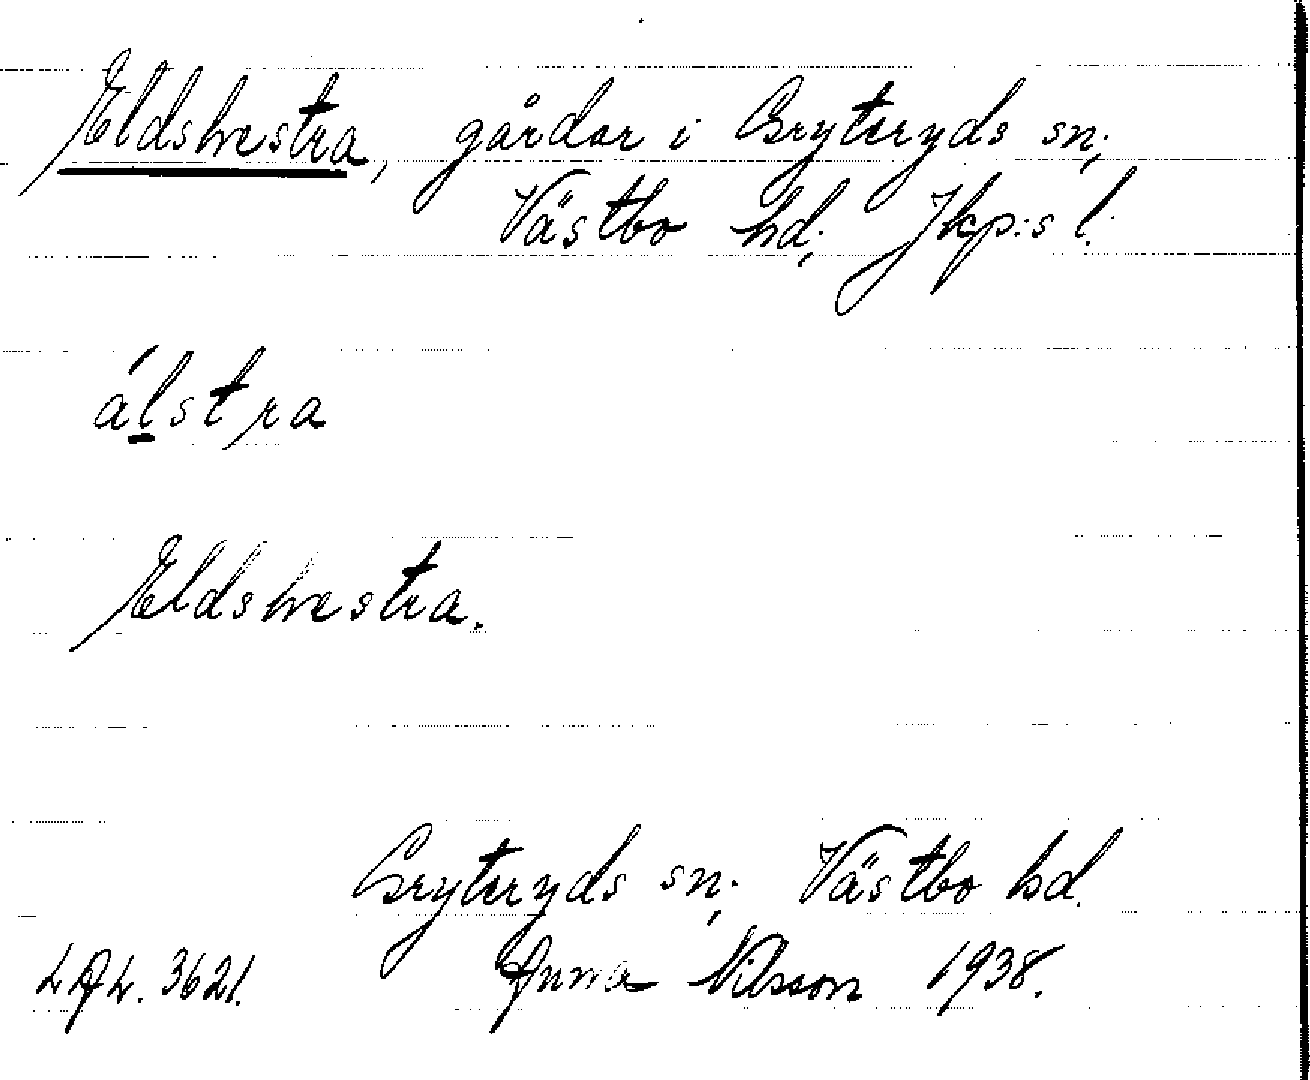 Eldshestra, gårdar i Gryteryds sn;
Västbo hd; Jkp:s l.
álstra
Eldshestra.
Gryteryds sn; Västbo hd.
LAL. 3621. Anna Nilsson 1938.